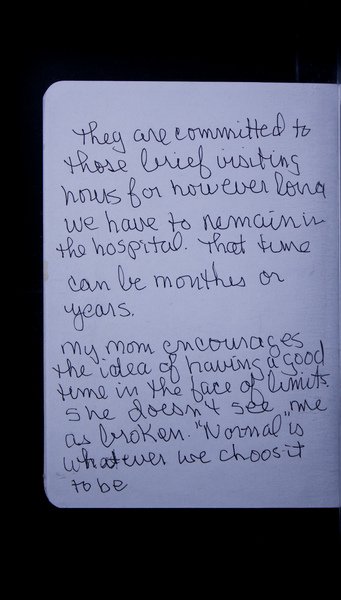 They are committed to
those brief visiting
hours for however long
we have to remain in
the hospital. That time
can be monthes or
years.
my mom encourages
the idea of having a good
time in the face of limits.
She doesn't see me
as broken. "Normal" is
whatever we choose it
to be